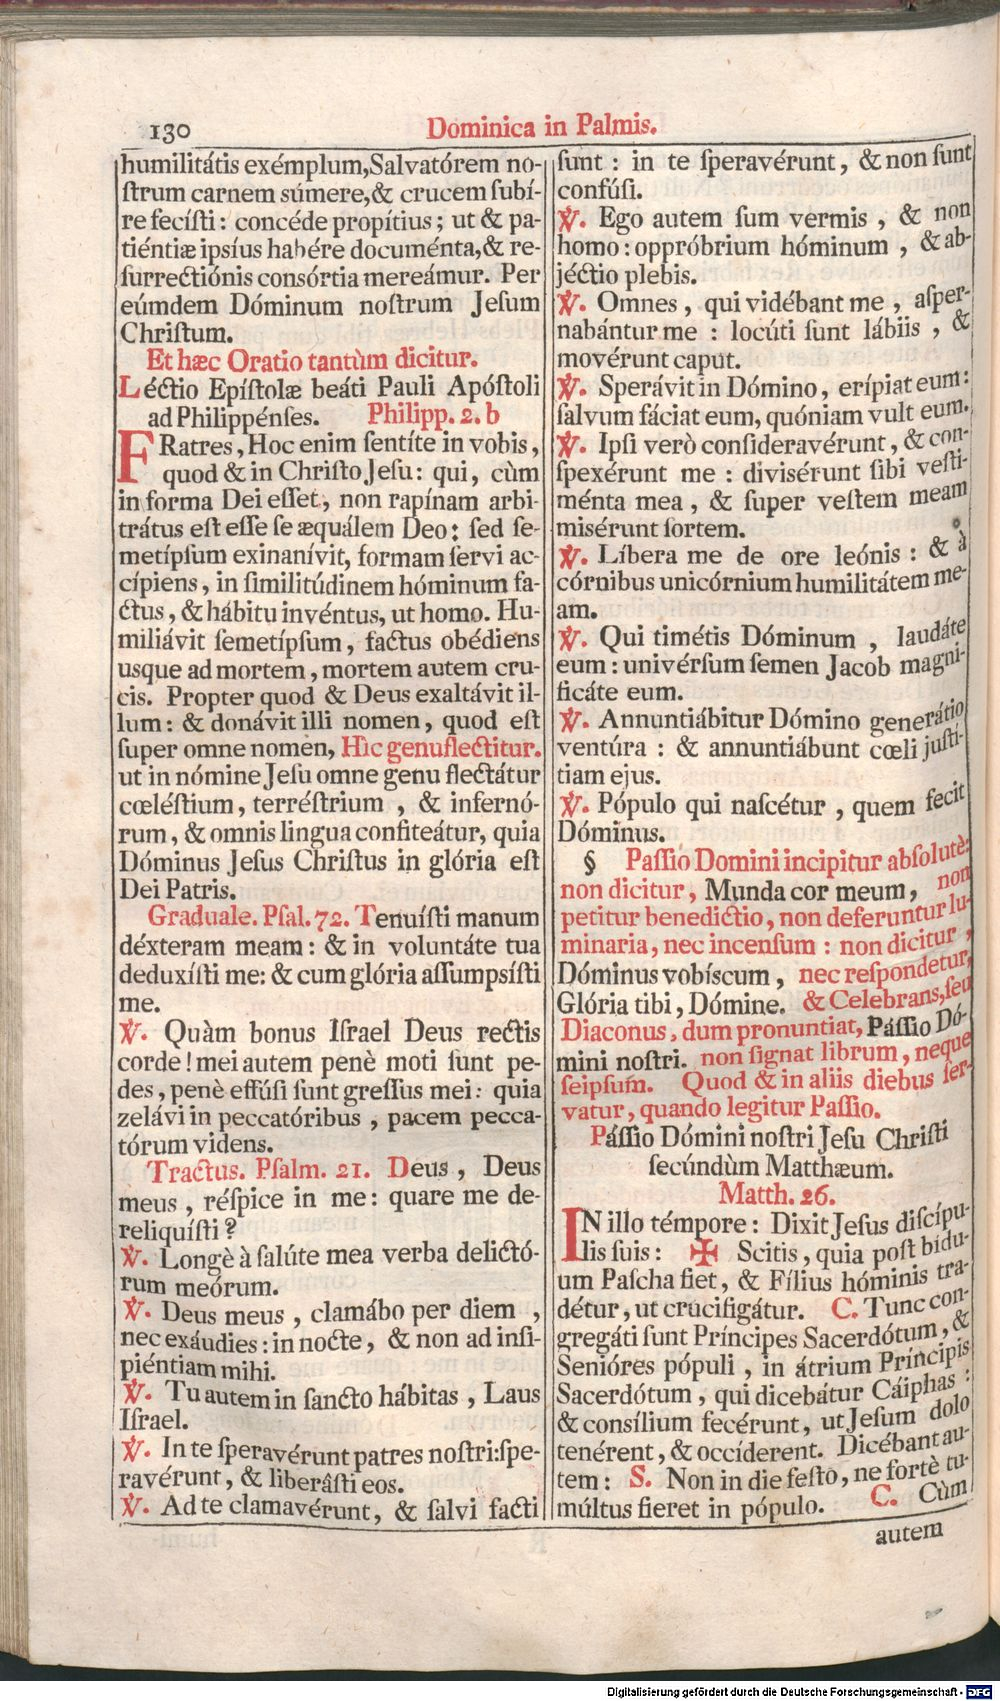 130
Dominica in Palmis.
humilitátis exémplum, Salvatórem no-
ſtrum carnem súmere, & crucem ſubí-
re feciſti: concéde propítius; ut & pa-
tiéntiæ ipsíus habére documénta, & re-
ſurrectiónis consórtia mereámur. Per
eúmdem Dóminum noſtrum Jeſum
Chriſtum.
Et hæc Oratio tantùm dicitur.
Léctio Epíſtolæ beáti Pauli Apóſtoli
ad Philippénſes. Philipp. 2. b
FRatres, Hoc enim ſentíte in vobis,
quod & in Chriſto Jeſu: qui, cùm
in forma Dei eſſet, non rapínam arbi-
trátus eſt eſſe ſe æquálem Deo: ſed ſe-
metípſum exinanívit, formam ſervi ac-
cípiens, in ſimilitúdinem hóminum fa-
ctus, & hábitu invéntus, ut homo. Hu-
miliávit ſemetípſum, factus obédiens
usque ad mortem, mortem autem cru-
cis. Propter quod & Deus exaltávit il-
lum: & donávit illi nomen, quod eſt
ſuper omne nomen, Hìc genuflectitur.
ut in nómine Jeſu omne genu flectátur
cœléſtium, terréſtrium, & infernó-
rum, & omnis lingua confiteátur, quia
Dóminus Jeſus Chriſtus in glória eſt
Dei Patris.
Graduale. Pſal. 72. Tenuíſti manum
déxteram meam: & in voluntáte tua
deduxíſti me: & cum glória aſſumpsíſti
me.
℣. Quàm bonus Iſrael Deus rectis
corde! mei autem penè moti ſunt pe-
des, penè effúſi ſunt greſſus mei: quia
zelávi in peccatóribus, pacem pecca-
tórum videns.
Tractus. Pſalm. 21. Deus, Deus
meus, réſpice in me: quare me de-
reliquíſti?
℣. Longè à ſalúte mea verba delictó-
rum meórum.
℣. Deus meus, clamábo per diem,
nec exáudies: in nocte, & non ad inſi-
piéntiam mihi.
℣. Tu autem in ſancto hábitas, Laus
Iſrael.
℣. In te ſperavérunt patres noſtri: ſpe-
ravérunt, & liberâſti eos.
℣. Ad te clamavérunt, & ſalvi facti
ſunt: in te ſperavérunt, & non ſunt
confúſi.
℣. Ego autem ſum vermis, & non
homo: oppróbrium hóminum, & ab-
jéctio plebis.
℣. Omnes, qui vidébant me, aſper-
nabántur me: locúti ſunt lábiis, &
movérunt caput.
℣. Sperávit in Dómino, erípiat eum:
ſalvum fáciat eum, quóniam vult eum.
℣. Ipſi verò conſideravérunt, & con-
ſpexérunt me: divisérunt ſibi veſti-
ménta mea, & ſuper veſtem meam
misérunt ſortem.
℣. Líbera me de ore leónis: & à
córnibus unicórnium humilitátem me-
am.
℣. Qui timétis Dóminum, laudáte
eum: univérſum ſemen Jacob magni-
ficáte eum.
℣. Annuntiábitur Dómino generátio
ventúra: & annuntiábunt cœli juſtí-
tiam ejus.
℣. Pópulo qui naſcétur, quem fecit
Dóminus.
§ Paſſio Domini incipitur abſolutè:
non dicitur, Munda cor meum, non
petitur benedictio, non deferuntur lu-
minaria, nec incenſum: non dicitur,
Dóminus vobíscum, nec reſpondetur,
Glória tibi, Dómine. & Celebrans, ſeu
Diaconus, dum pronuntiat, Páſſio Dó-
mini noſtri. non ſignat librum, neque
ſeipſum. Quod & in aliis diebus ſer-
vatur, quando legitur Paſſio.
Páſſio Dómini noſtri Jeſu Chriſti
ſecúndùm Matthæum.
Matth. 26.
IN illo témpore: Dixit Jeſus diſcípu-
lis ſuis: ✠ Scitis, quia poſt bidu-
um Paſcha fiet, & Fílius hóminis tra-
détur, ut crucifigátur. C. Tunc con-
gregáti ſunt Príncipes Sacerdótum, &
Senióres pópuli, in átrium Príncipis
Sacerdótum, qui dicebátur Cáiphas:
& consílium fecérunt, ut Jeſum dolo
tenérent, & occíderent. Dicébant au-
tem: S. Non in die feſto, ne fortè tu-
múltus fieret in pópulo. C. Cùm
autem
Digitalisierung gefördert durch die Deutsche Forschungsgemeinschaft - DFG